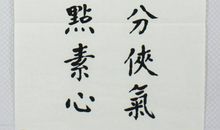 分俠氣
點素心